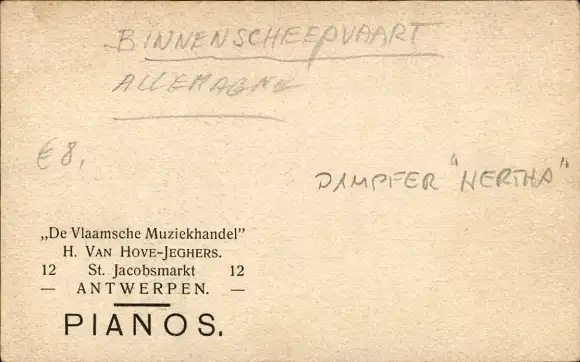 BINNENSCHEEPVAART
ALLEMAGNE
€ 8,
DAMPFER "HERTHA"
„De Vlaamsche Muziekhandel”
H. VAN HOVE-JEGHERS.
12 St. Jacobsmarkt 12
— ANTWERPEN. —
PIANOS.